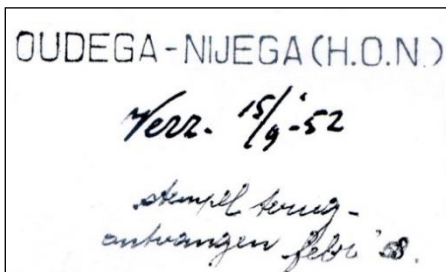 OUDEGA-NIJEGA (H.O.N.)
Verz. 15/9-52
stempel terug-
ontvangen febr '58.